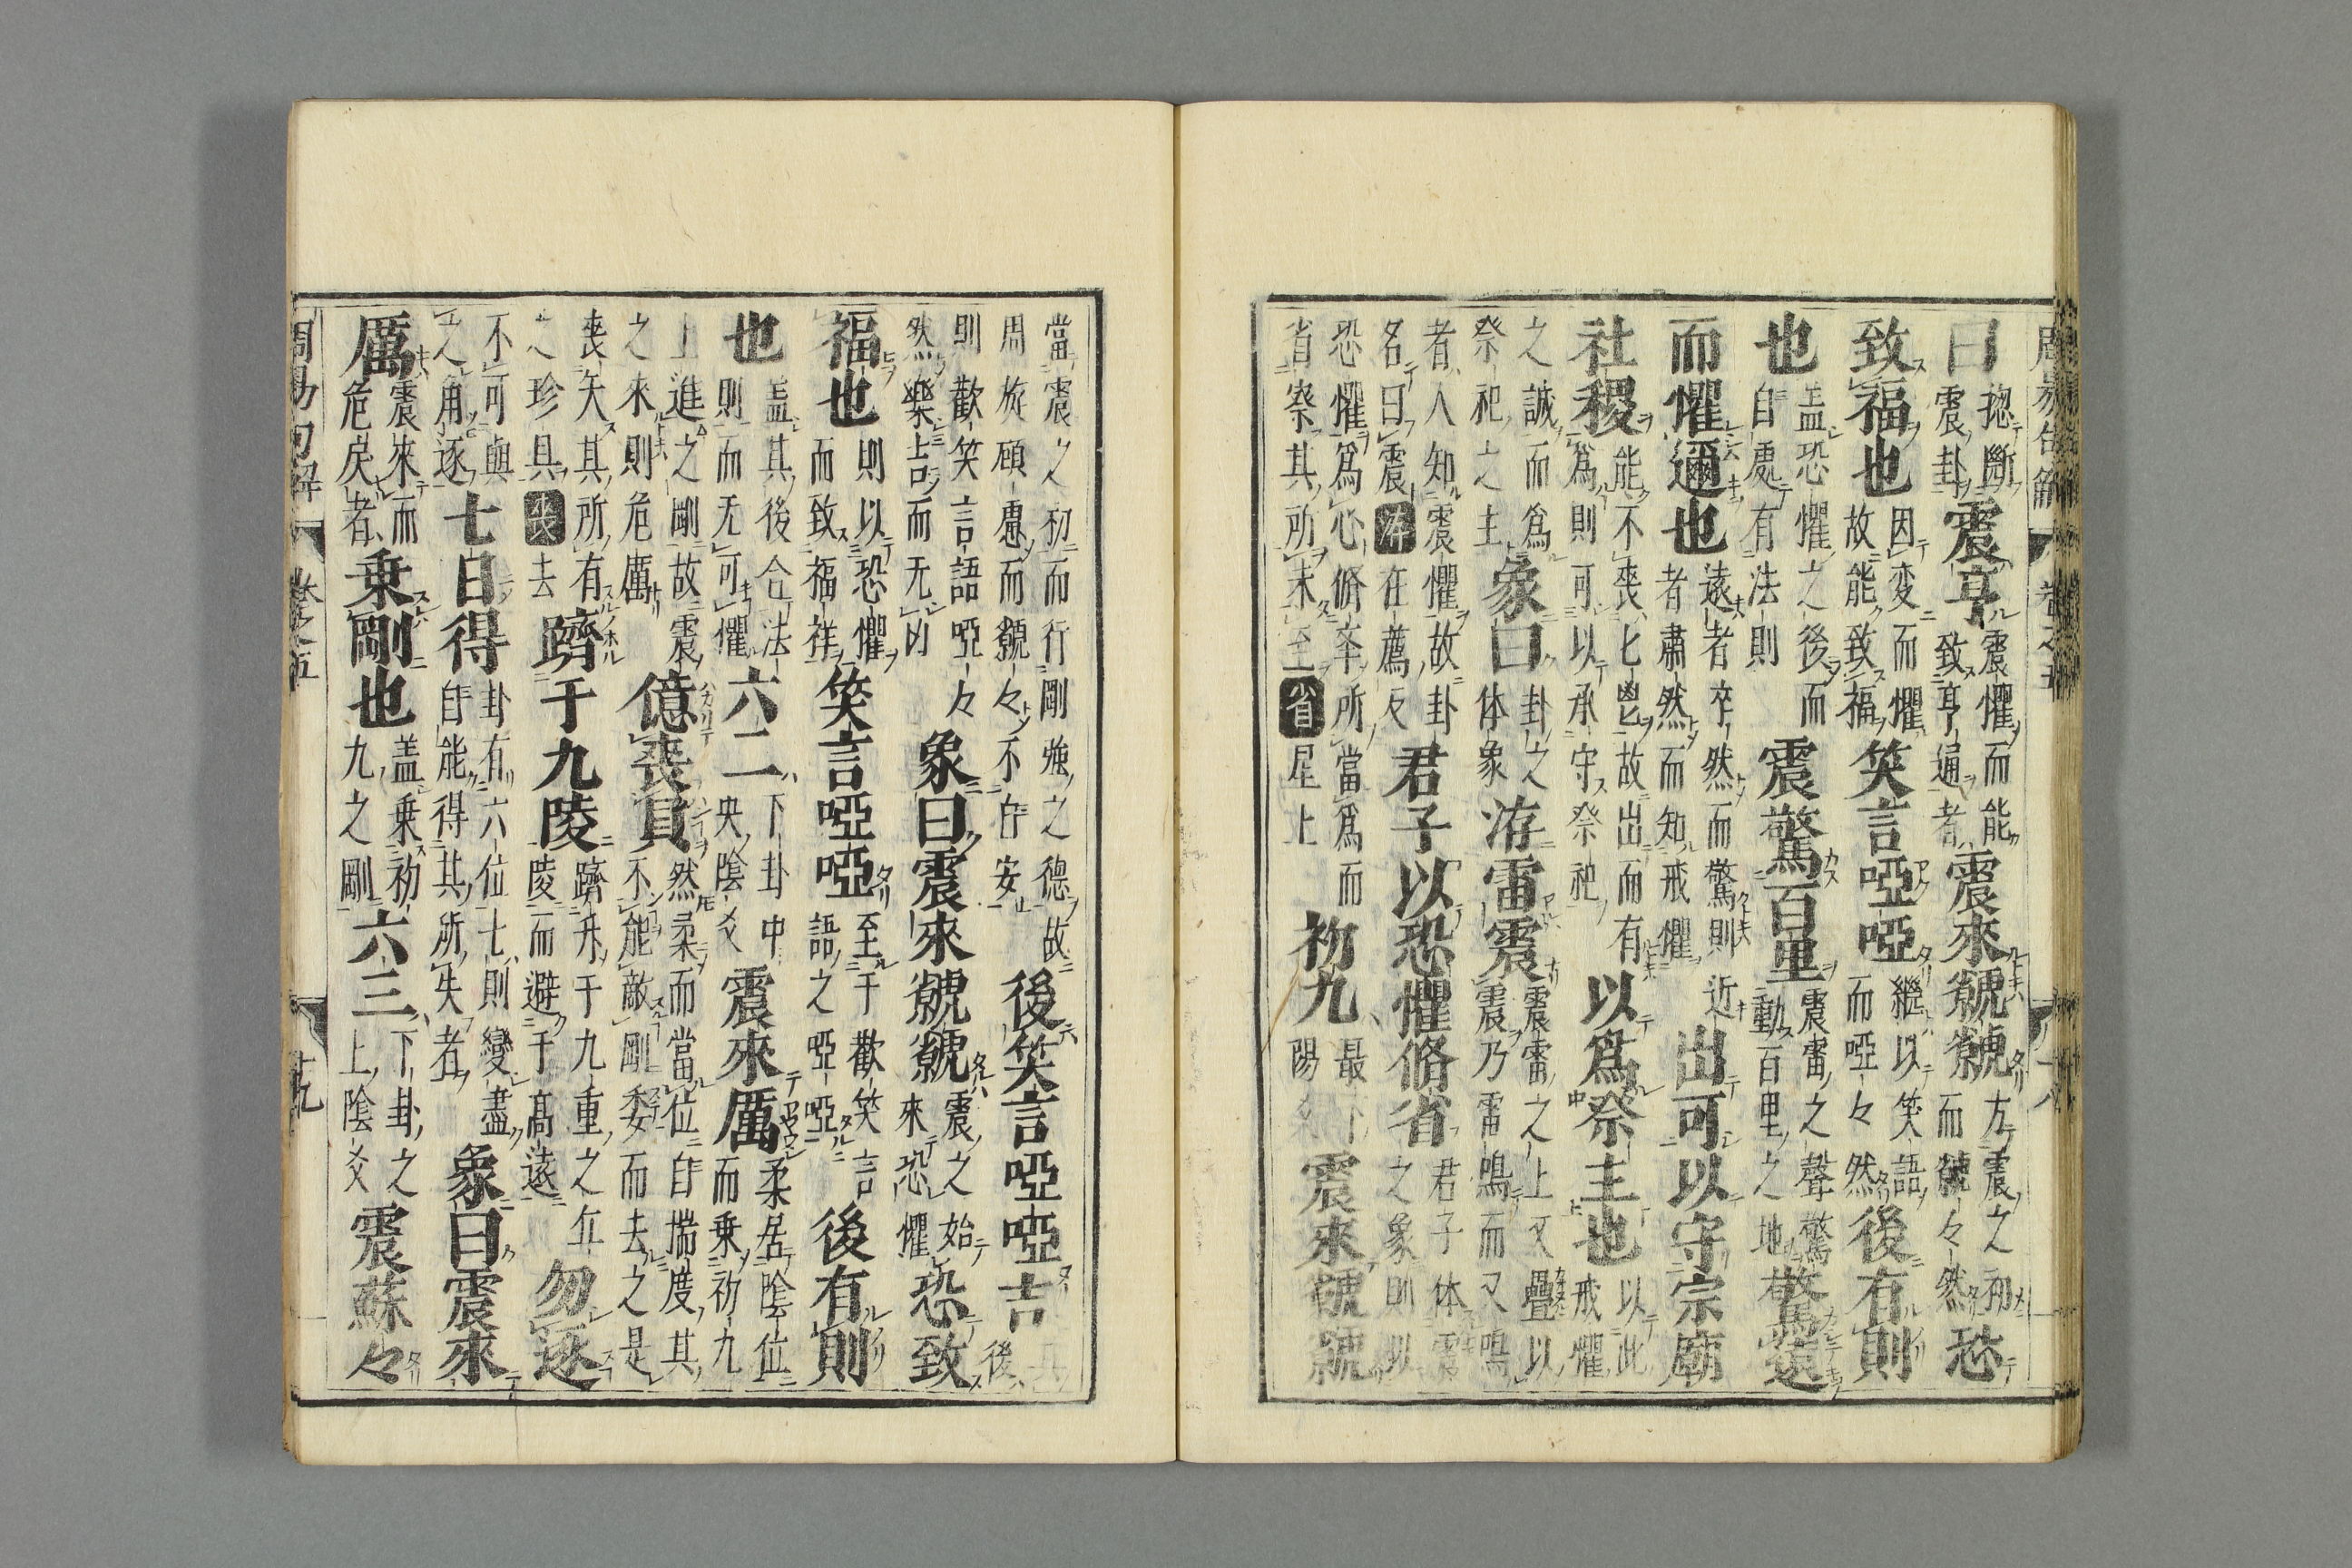 曰揔斷震卦震亨震懼而能致亨通者震來虩虩方震之初而虩々然恐
致福也因変而懼故能致福笑言啞啞繼以笑語而啞々然後有則
也盖恐懼之後而自處有法則震驚百里震雷之聲驚動百里之地驚遠
而懼邇也遠者卒然而驚則近者肅然而知戒懼出可以守宗廟
社稷能不喪匕鬯故出而有爲則可以承守祭祀以爲祭主也以此戒懼
之誠而爲祭祀之主象曰卦之体象洊雷震震雷之上又疊以震乃雷鳴而又鳴
者人知震懼故卦名曰震洊在薦反君子以恐懼脩省君子体震之象則以
恐懼爲心脩卒所當爲而省察其所未至省星上初九最下陽爻震來虩虩
當震之初而行剛強之德故周旋顧慮而虩々不自安後笑言啞啞吉後
則歡笑言語啞々然樂吉而无凶象曰震來虩虩震之始來恐懼恐致
福也則以恐懼而致福祥笑言啞啞至于歡笑言語之啞啞後有則
也盖其後合法則而无可懼六二下卦中央陰爻震來厲柔居陰位而乗初九
上進之剛故震之來則危厲億喪貝然柔而當位自揣度其不能敵剛委而去之是
喪失其所有之珍具喪去躋于九陵躋升于九重之丘陵而避于髙遠勿逐
不可與之角逐七日得卦有六位七則變盡自能得其所失者象曰震來
厲震來而危戾者乗剛也盖乗初九之剛六三下卦之上陰爻震蘇々
周易句解 卷之五 十八
周易句解 卷之五 十九